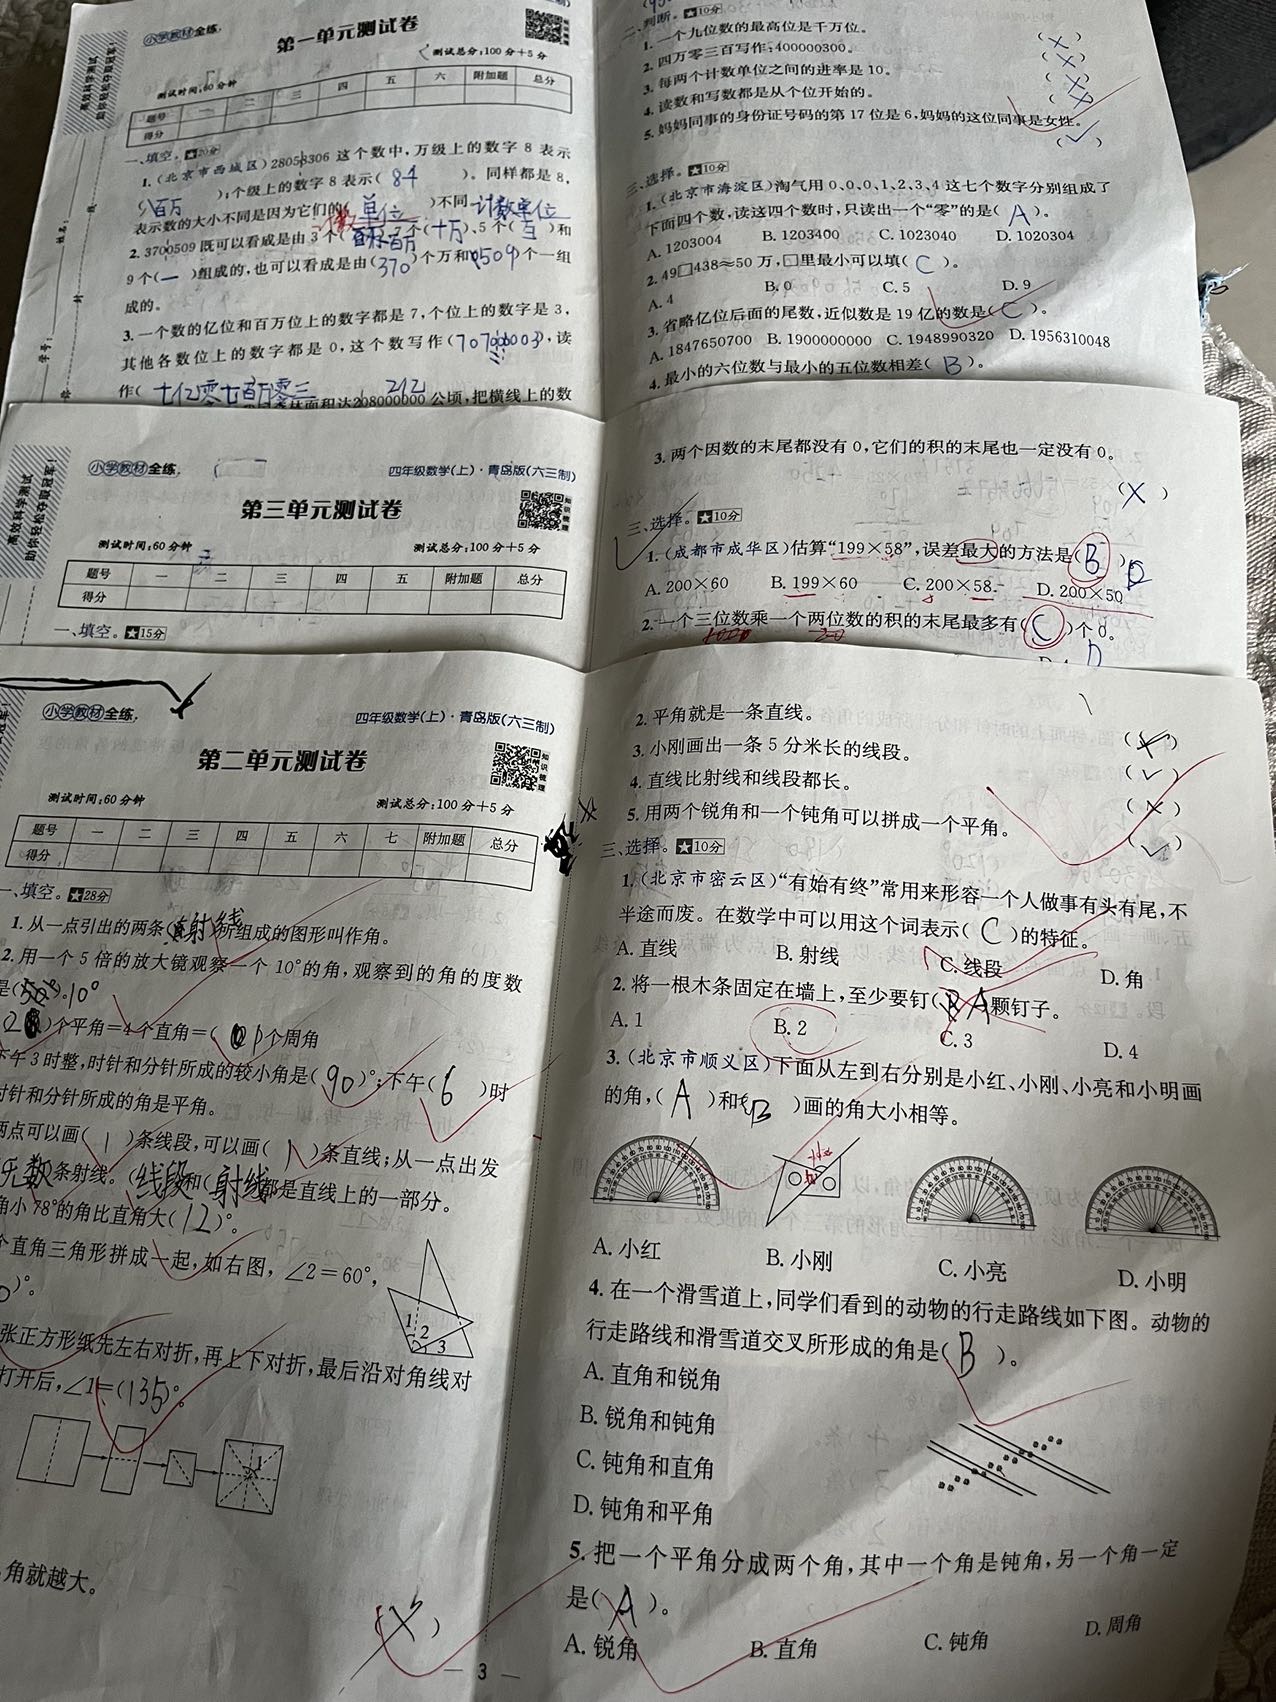 小学教材全练
第一单元测试卷
高效科学测试
助你轻松夺取冠军!
测试时间:60分钟
测试总分:100分+5分
题号 一 二 三 四 五 六 附加题 总分
得分
一、填空。★20分
1.(北京市西城区)28058306这个数中,万级上的数字8表示
(8百万);个级上的数字8表示( )。同样都是8,
表示数的大小不同是因为它们的(单位)不同 计数单位
2. 3700509既可以看成是由3个(百万)、7个(十万)、5个(百)和
9个(一)组成的,也可以看成是由(370)个万和(0509)个一组
成的。
3.一个数的亿位和百万位上的数字都是7,个位上的数字是3,
其他各数位上的数字都是0,这个数写作( ),读
作(七亿零七百万零三
208000000公顷,把横线上的数
二、判断。★10分
1.一个九位数的最高位是千万位。 (×)
2.四万零三百写作:400000300。 (×)
3.每两个计数单位之间的进率是10。 (×)
4.读数和写数都是从个位开始的。 (×)
5.妈妈同事的身份证号码的第17位是6,妈妈的这位同事是女性。 (√)
三、选择。★10分
1.(北京市海淀区)淘气用0、0、0、1、2、3、4这七个数字分别组成了
下面四个数,读这四个数时,只读出一个“零”的是(A)。
A. 1203004 B. 1203400 C. 1023040 D. 1020304
2. 49□438≈50万,□里最小可以填(C)。
A. 4 B. 0 C. 5 D. 9
3.省略亿位后面的尾数,近似数是19亿的数是(C)。
A. 1847650700 B. 1900000000 C. 1948990320 D. 1956310048
4.最小的六位数与最小的五位数相差(B)。
小学教材全练
四年级数学(上)·青岛版(六三制)
第三单元测试卷
高效科学测试
助你轻松夺取冠军!
知识梳理
测试时间:60分钟
测试总分:100分+5分
题号 一 二 三 四 五 附加题 总分
得分
一、填空。★15分
3.两个因数的末尾都没有0,它们的积的末尾也一定没有0。
(×)
三、选择。★10分
1.(成都市成华区)估算“199×58”,误差最大的方法是(B) D
A. 200×60 B. 199×60 C. 200×58 D. 200×50
2.一个三位数乘一个两位数的积的末尾最多有(C)个0。
D
小学教材全练
四年级数学(上)·青岛版(六三制)
第二单元测试卷
知识梳理
测试时间:60分钟
测试总分:100分+5分
题号 一 二 三 四 五 六 七 附加题 总分
得分
一、填空。★28分
1.从一点引出的两条(射线)所组成的图形叫作角。
2.用一个5倍的放大镜观察一个10°的角,观察到的角的度数
是( )。10°
)个平角=4个直角=( )个周角
下午3时整,时针和分针所成的较小角是(90)°;下午(6)时
时针和分针所成的角是平角。
两点可以画(1)条线段,可以画(1)条直线;从一点出发
无数条射线。(线段)和(射线)都是直线上的一部分。
角小78°的角比直角大(12)°。
个直角三角形拼成一起,如右图,∠2=60°,
)°。
1 2 3
张正方形纸先左右对折,再上下对折,最后沿对角线对
打开后,∠1=(135)°。
1
角就越大。
(×)
— 3 —
2.平角就是一条直线。 (×)
3.小刚画出一条5分米长的线段。 (√)
4.直线比射线和线段都长。 (×)
5.用两个锐角和一个钝角可以拼成一个平角。 (√)
三、选择。★10分
1.(北京市密云区)“有始有终”常用来形容一个人做事有头有尾,不
半途而废。在数学中可以用这个词表示(C)的特征。
A. 直线 B. 射线 C. 线段 D. 角
2.将一根木条固定在墙上,至少要钉( A)颗钉子。
A. 1 B. 2 C. 3 D. 4
3.(北京市顺义区)下面从左到右分别是小红、小刚、小亮和小明画
的角,(A)和(B)画的角大小相等。
A. 小红 B. 小刚 C. 小亮 D. 小明
4.在一个滑雪道上,同学们看到的动物的行走路线如下图。动物的
行走路线和滑雪道交叉所形成的角是(B)。
A. 直角和锐角
B. 锐角和钝角
C. 钝角和直角
D. 钝角和平角
5.把一个平角分成两个角,其中一个角是钝角,另一个角一定
是(A)。
A. 锐角 B. 直角 C. 钝角 D. 周角